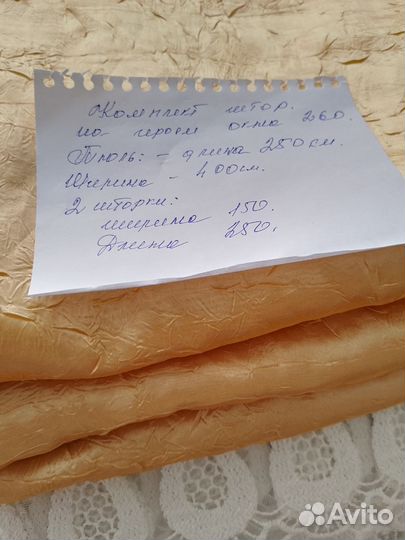 Комплект штор.
на проем окна 260.
Тюль: - длина 250 см.
Ширина - 400 см.
2 шторки:
ширина 150.
Длина 250.
Avito